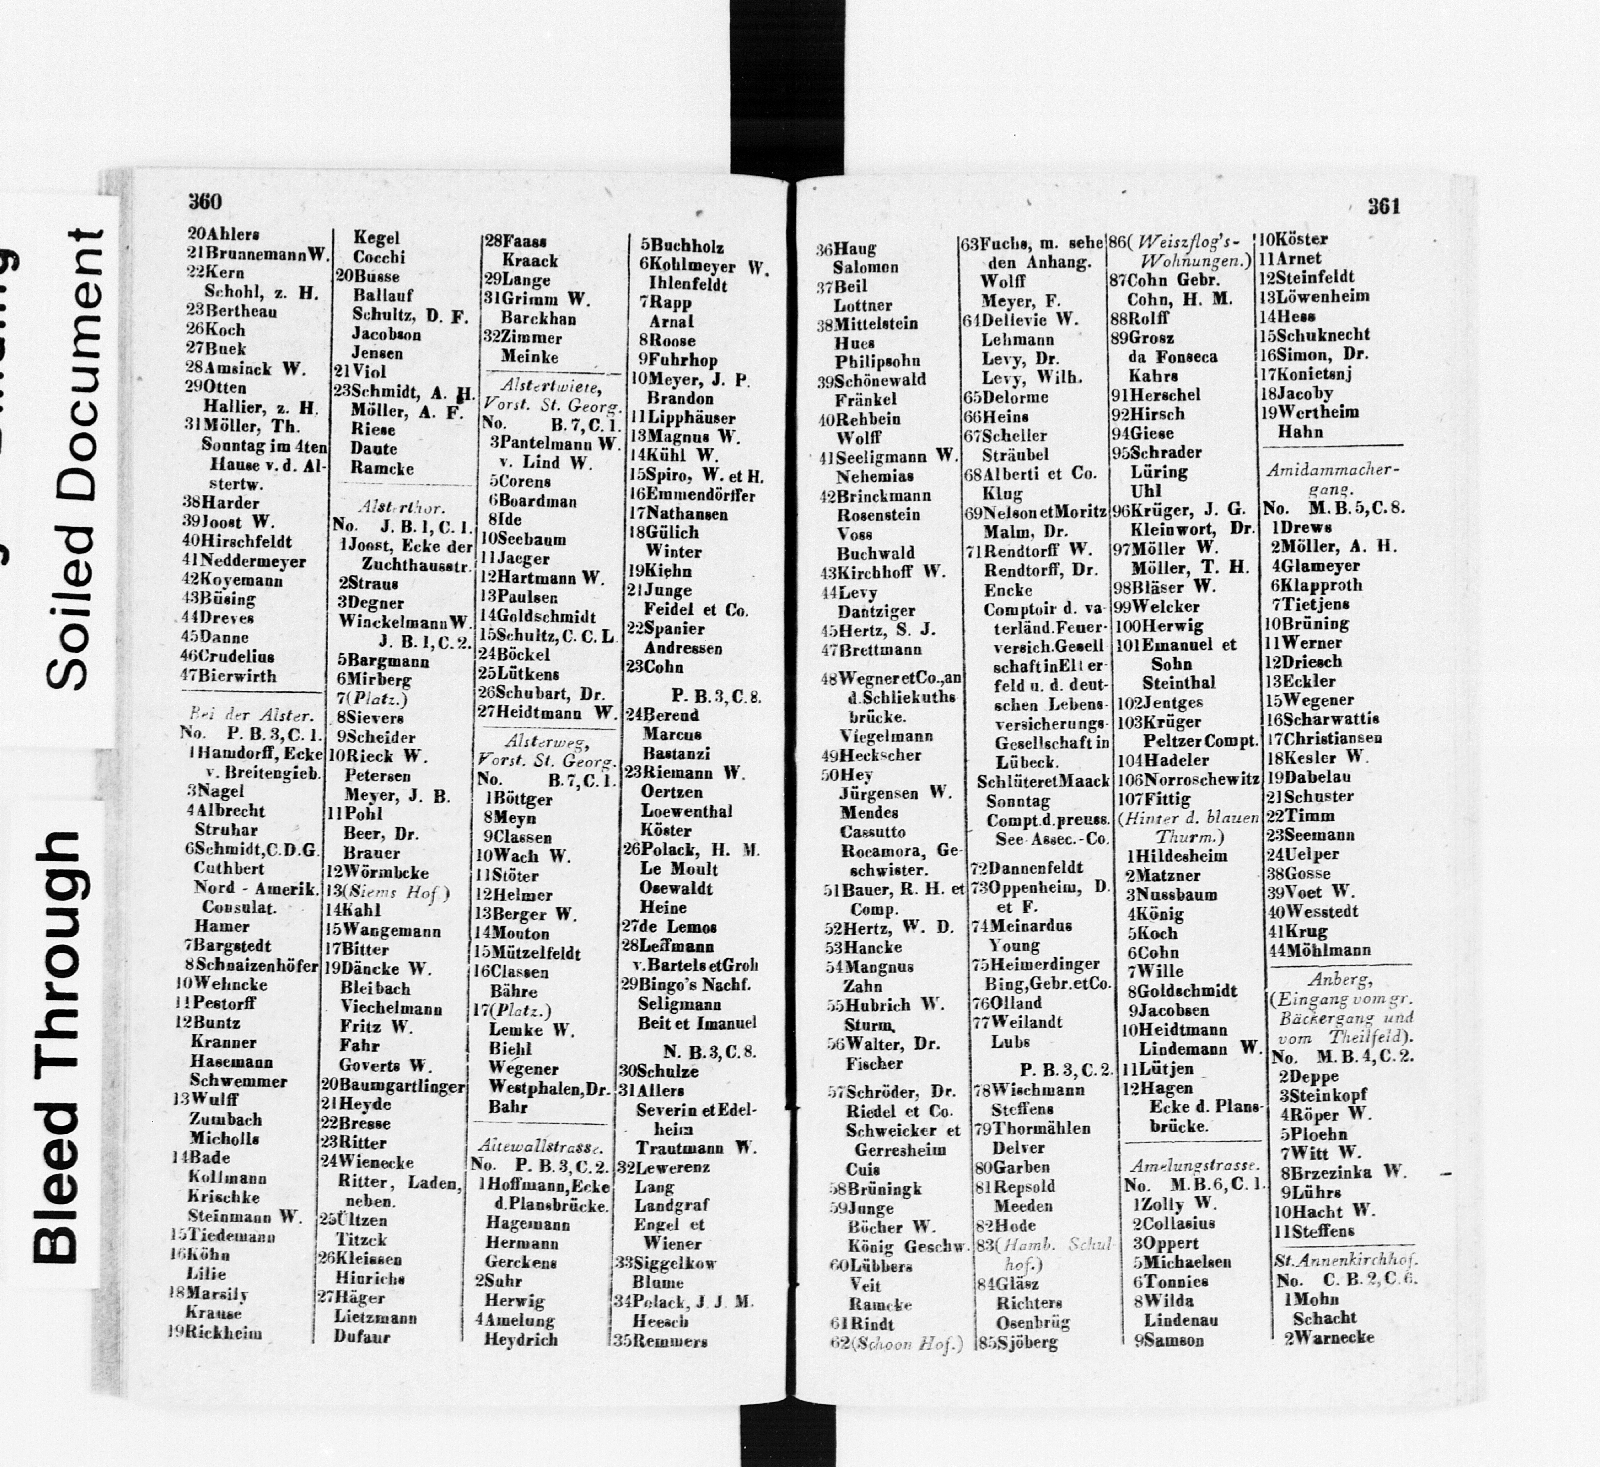 Soiled Document
Bleed Through
360
20Ahlers
21Brunnemann W.
22Kern
Schohl, z. H.
23Bertheau
26Koch
27Buek
28Amsinck W.
29Otten
Hallier, z. H.
31Möller, Th.
Sonntag im 4ten
Hause v. d. Al-
stertw.
38Harder
39Joost W.
40Hirschfeldt
41Neddermeyer
42Koyemann
43Büsing
44Dreves
45Danne
46Crudelius
47Bierwirth
Bei der Alster.
No. P. B. 3, C. 1.
1Hamdorff, Ecke
v. Breitengieb.
3Nagel
4Albrecht
Struhar
6Schmidt, C.D.G.
Cuthbert
Nord - Amerik.
Consulat.
Hamer
7Bargstedt
8Schnaizenhöfer
10Wehncke
11Pestorff
12Buntz
Kranner
Hasemann
Schwemmer
13Wulff
Zumbach
Micholls
14Bade
Kollmann
Krischke
Steinmann W.
15Tiedemann
16Köhn
Lilie
18Marsily
Krause
19Rickheim
Kegel
Cocchi
20Busse
Ballauf
Schultz, D. F.
Jacobson
Jensen
21Viol
23Schmidt, A. H.
Möller, A. F.
Riese
Daute
Ramcke
Alsterthor.
No. J. B. 1, C. 1.
1Joost, Ecke der
Zuchthausstr.
2Straus
3Degner
Winckelmann W.
J. B. 1, C. 2.
5Bargmann
6Mirberg
7(Platz.)
8Sievers
9Scheider
10Rieck W.
Petersen
Meyer, J. B.
11Pohl
Beer, Dr.
Brauer
12Wörmbcke
13(Siems Hof)
14Kahl
15Wangemann
17Bitter
19Däncke W.
Bleibach
Viechelmann
Fritz W.
Fahr
Goverts W.
20Baumgartlinger
21Heyde
22Bresse
23Ritter
24Wienecke
Ritter, Laden,
neben.
25Ültzen
Titzck
26Kleissen
Hinrichs
27Häger
Lietzmann
Dufaur
28Faass
Kraack
29Lange
31Grimm W.
Barckhan
32Zimmer
Meinke
Alstertwiete,
Vorst. St. Georg.
No. B. 7, C. 1.
3Pantelmann W.
v. Lind W.
5Corens
6Boardman
8Ide
10Seebaum
11Jaeger
12Hartmann W.
13Paulsen
14Goldschmidt
15Schultz, C. C. L
24Böckel
25Lütkens
26Schubart, Dr.
27Heidtmann W.
Alsterweg,
Vorst. St. Georg.
No. B. 7, C. 1.
1Böttger
8Meyn
9Classen
10Wach W.
11Stöter
12Helmer
13Berger W.
14Mouton
15Mützelfeldt
16Classen
Bähre
17(Platz.)
Lemke W.
Biehl
Wegener
Westphalen, Dr.
Bahr
Altewallstrasse.
No. P. B. 3, C. 2.
1Hoffmann, Ecke
d. Plansbrücke.
Hagemann
Hermann
Gerckens
2Suhr
Herwig
4Amelung
Heydrich
5Buchholz
6Kohlmeyer W.
Ihlenfeldt
7Rapp
Arnal
8Roose
9Fuhrhop
10Meyer, J. P.
Brandon
11Lipphäuser
13Magnus W.
14Kühl W.
15Spiro, W. et H.
16Emmendörffer
17Nathansen
18Gülich
Winter
19Kiehn
21Junge
Feidel et Co.
22Spanier
Andressen
23Cohn
P. B. 3, C. 8.
24Berend
Marcus
Bastanzi
23Riemann W.
Oertzen
Loewenthal
Köster
26Polack, H. M.
Le Moult
Osewaldt
Heine
27de Lemos
28Leffmann
v. Bartels et Groh
29Bingo's Nachf.
Seligmann
Beit et Imanuel
N. B. 3, C. 8.
30Schulze
31Allers
Severin et Edel-
heim
Trautmann W.
32Lewerenz
Lang
Landgraf
Engel et
Wiener
33Siggelkow
Blume
34Polack, J. J. M.
Heesch
35Remmers
361
36Haug
Salomon
37Beil
Lottner
38Mittelstein
Hues
Philipsohn
39Schönewald
Fränkel
40Rehbein
Wolff
41Seeligmann W.
Nehemias
42Brinckmann
Rosenstein
Voss
Buchwald
43Kirchhoff W.
44Levy
Dantziger
45Hertz, S. J.
47Brettmann
48Wegner et Co., an
d. Schliekuths
brücke.
Viegelmann
49Heckscher
50Hey
Jürgensen W.
Mendes
Cassutto
Rocamora, Ge-
schwister.
51Bauer, R. H. et
Comp.
52Hertz, W. D.
53Hancke
54Mangnus
Zahn
55Hubrich W.
Sturm,
56Walter, Dr.
Fischer
57Schröder, Dr.
Riedel et Co.
Schweicker et
Gerresheim
Cuis
58Brüningk
59Junge
Böcher W.
König Geschw.
60Lübbers
Veit
Ramcke
61Rindt
62(Schoon Hof.)
63Fuchs, m. sehe
den Anhang.
Wolff
Meyer, F.
64Dellevie W.
Lehmann
Levy, Dr.
Levy, Wilh.
65Delorme
66Heins
67Scheller
Sträubel
68Alberti et Co.
Klug
69Nelson et Moritz
Malm, Dr.
71Rendtorff W.
Rendtorff, Dr.
Encke
Comptoir d. va-
terländ. Feuer-
versich. Gesell
schaft in Elber-
feld u. d. deut-
schen Lebens-
versicherungs-
Gesellschaft in
Lübeck.
Schlüter et Maack
Sonntag
Compt. d. preuss.
See-Assec.-Co.
72Dannenfeldt
73Oppenheim, D.
et F.
74Meinardus
Young
75Heimerdinger
Bing, Gebr. et Co.
76Olland
77Weilandt
Lubs
P. B. 3, C. 2.
78Wischmann
Steffens
79Thormählen
Delver
80Garben
81Repsold
Meeden
82Hode
83(Hamb. Schul-
hof.)
84Gläsz
Richters
Osenbrüg
85Sjöberg
86(Weiszflog's-
Wohnungen.)
87Cohn Gebr.
Cohn, H. M.
88Rolff
89Grosz
da Fonseca
Kahrs
91Herschel
92Hirsch
94Giese
95Schrader
Lüring
Uhl
96Krüger, J. G.
Kleinwort, Dr.
97Möller W.
Möller, T. H.
98Bläser W.
99Welcker
100Herwig
101Emanuel et
Sohn
Steinthal
102Jentges
103Krüger
Peltzer Compt.
104Hadeler
106Norroschewitz
107Fittig
(Hinter d. blauen
Thurm.)
1Hildesheim
2Matzner
3Nussbaum
4König
5Koch
6Cohn
7Wille
8Goldschmidt
9Jacobsen
10Heidtmann
Lindemann W.
11Lütjen
12Hagen
Ecke d. Plans-
brücke.
Amelungstrasse.
No. M. B. 6, C. 1.
1Zolly W.
2Collasius
3Oppert
5Michaelsen
6Tonnies
8Wilda
Lindenau
9Samson
10Köster
11Arnet
12Steinfeldt
13Löwenheim
14Hess
15Schuknecht
16Simon, Dr.
17Konietsnj
18Jacoby
19Wertheim
Hahn
Amidammacher-
gang.
No. M. B. 5, C. 8.
1Drews
2Möller, A. H.
4Glameyer
6Klapproth
7Tietjens
10Brüning
11Werner
12Driesch
13Eckler
15Wegener
16Scharwattis
17Christiansen
18Kesler W.
19Dabelau
21Schuster
22Timm
23Seemann
24Uelper
38Gosse
39Voet W.
40Wesstedt
41Krug
44Möhlmann
Anberg,
(Eingang vom gr.
Bäckergang und
vom Theilfeld).
No. M. B. 4, C. 2.
2Deppe
3Steinkopf
4Röper W.
5Ploehn
7Witt W.
8Brzezinka W.
9Lührs
10Hacht W.
11Steffens
St. Annenkirchhof.
No. C. B. 2, C. 6.
1Mohn
Schacht
2Warnecke